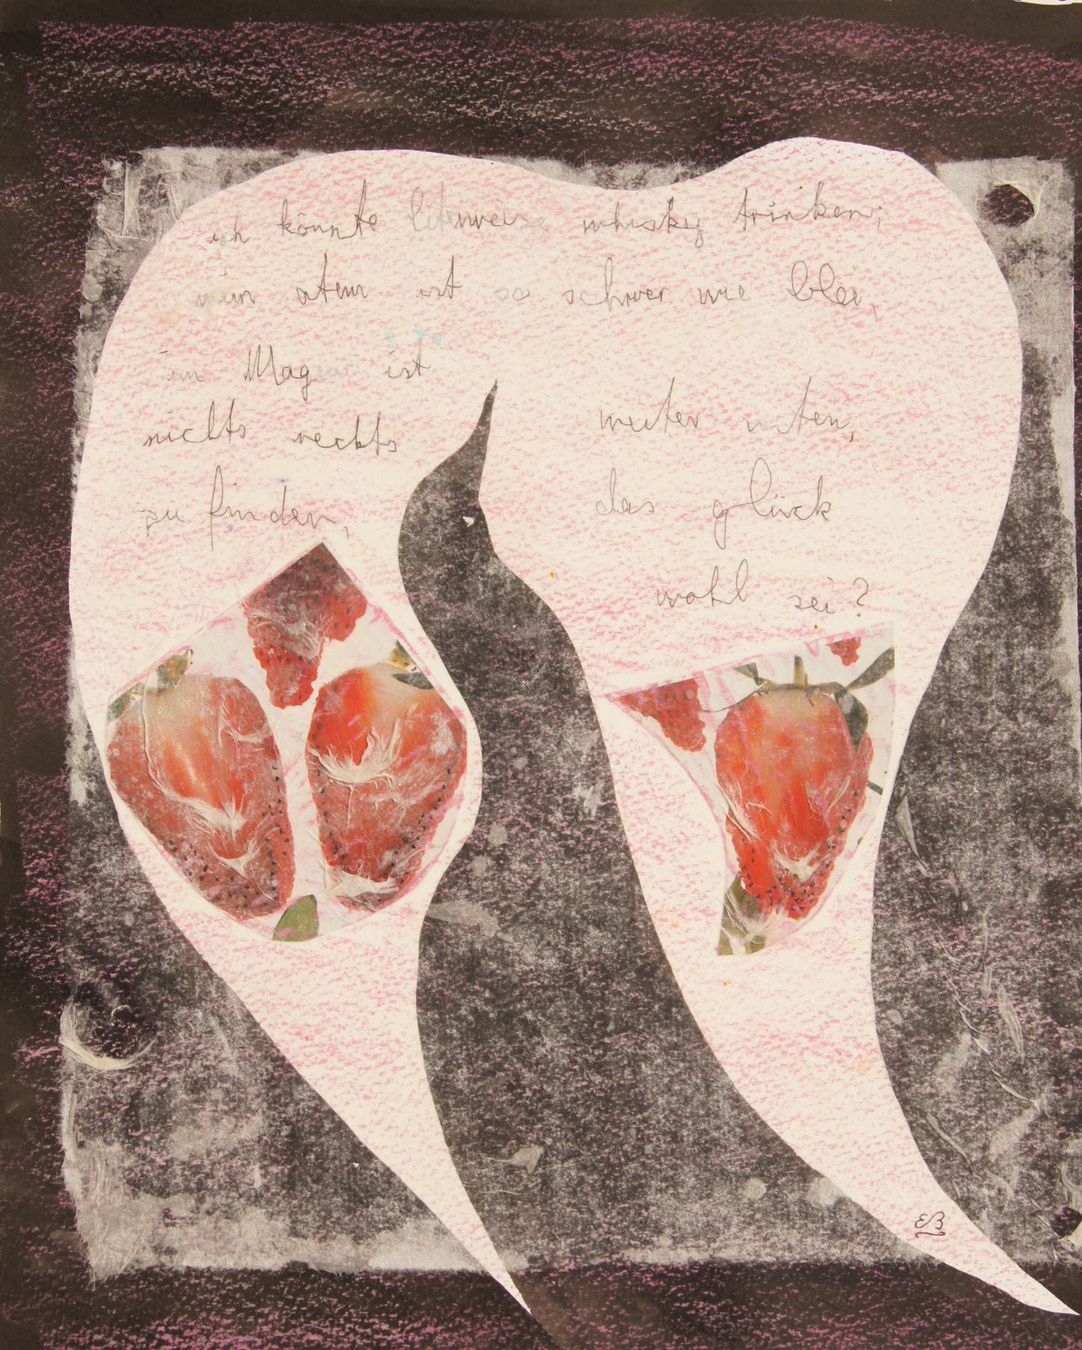 ich könnte literweise whisky trinken;
mein atem ist so schwer wie blei,
im Magen ist
nichts rechts
zu finden,
weiter unten,
das glück
wohl sei?
EB